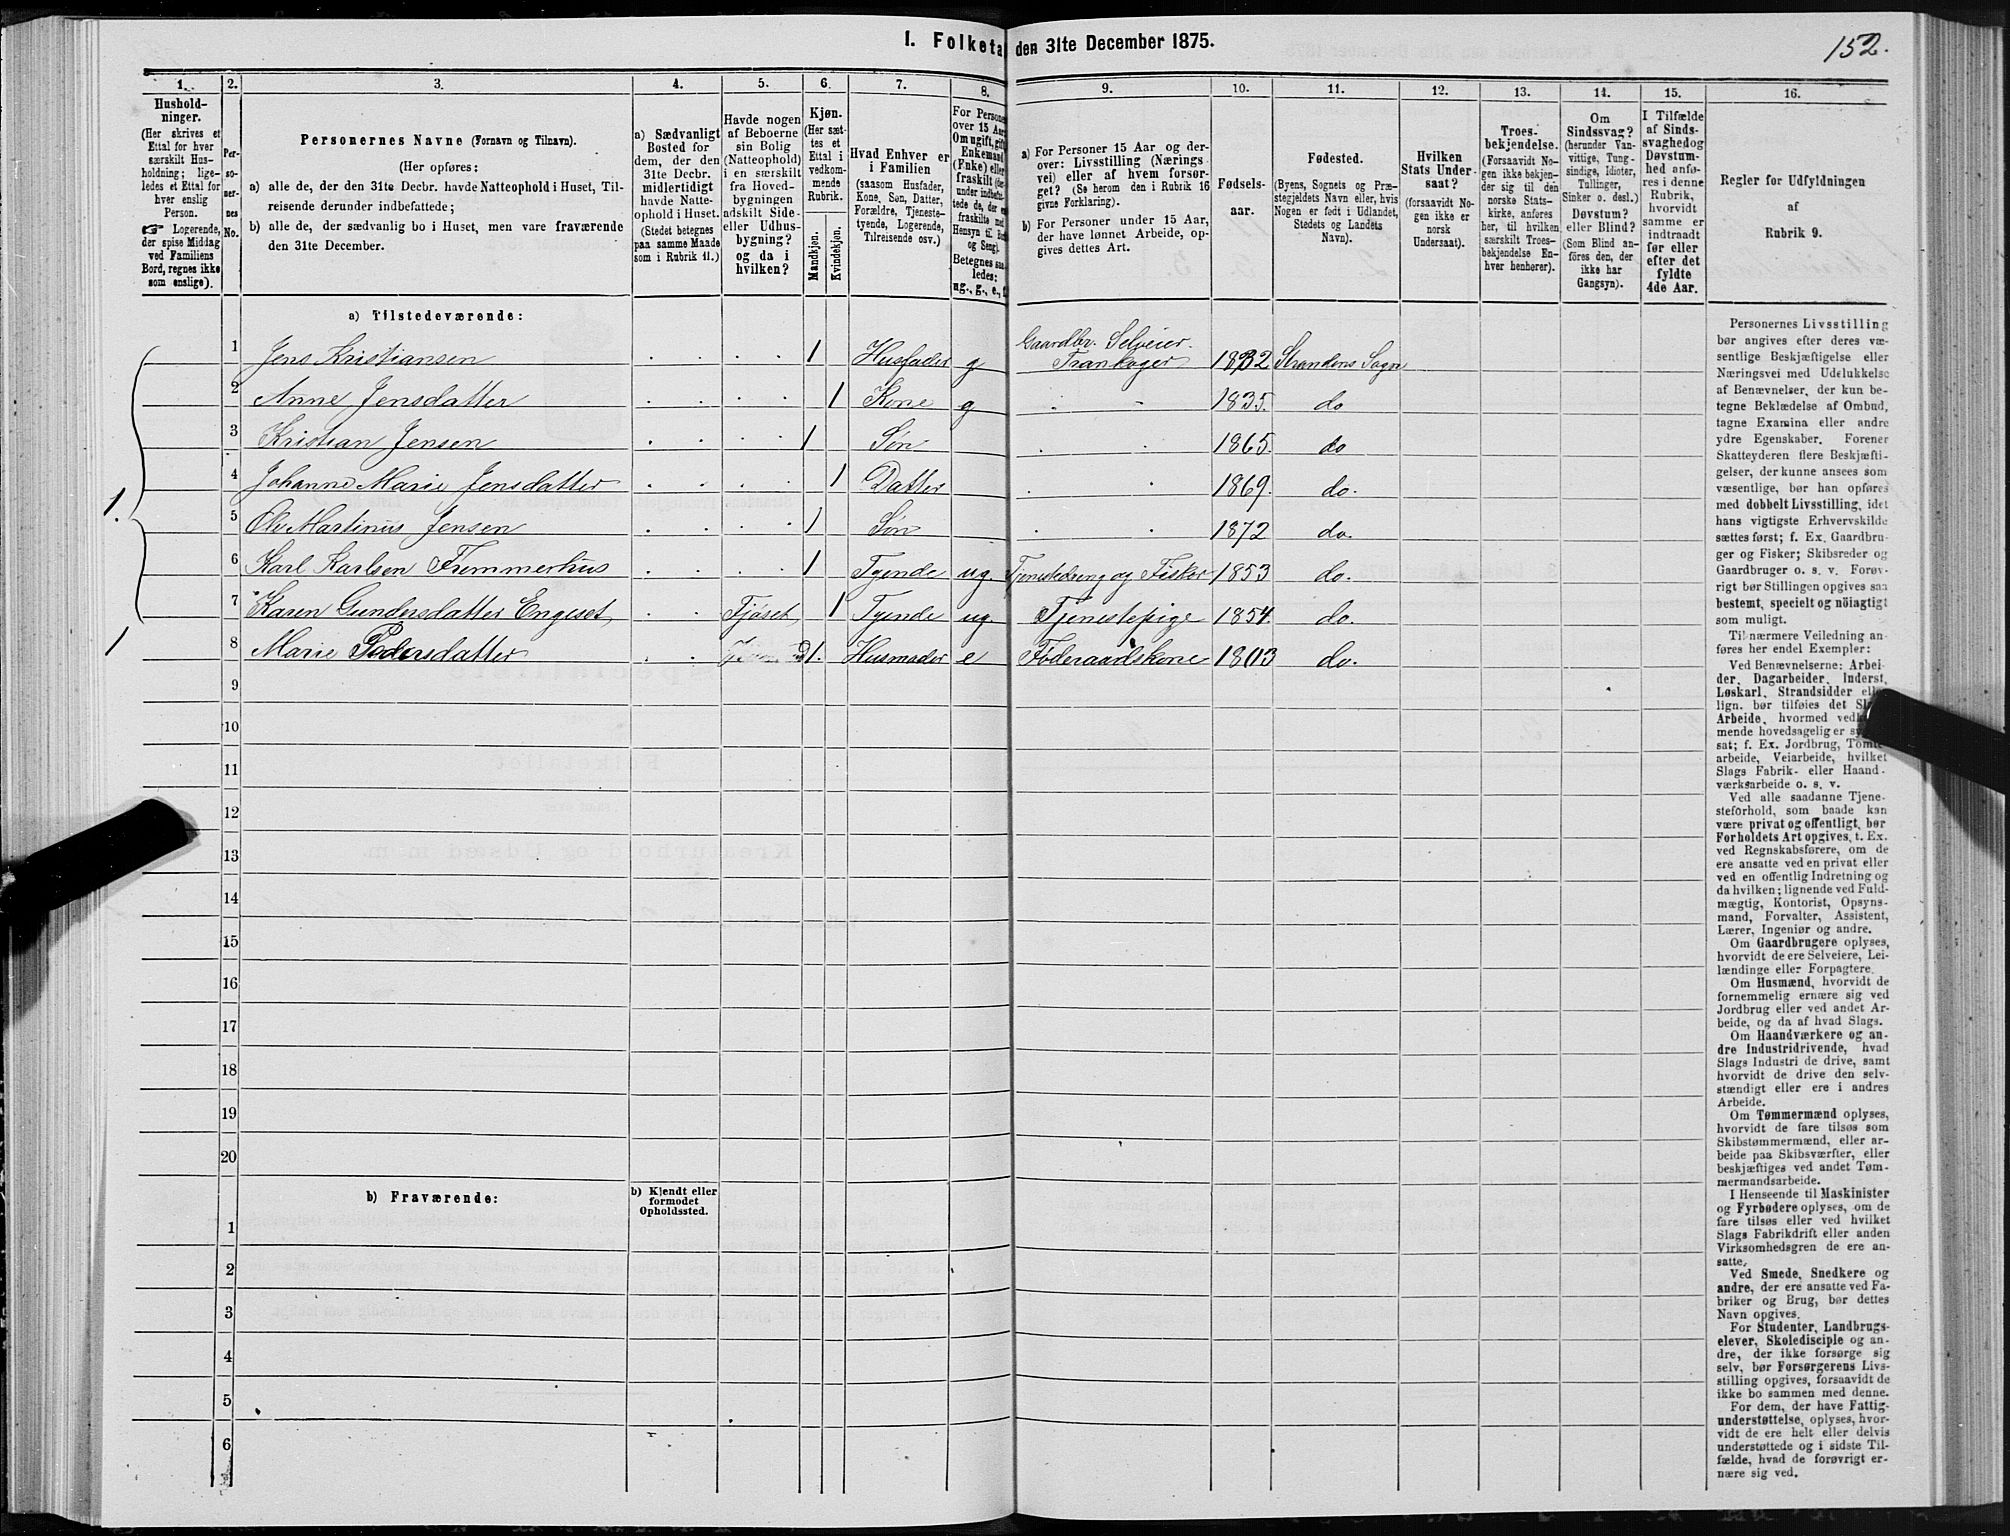 I. Folketa den 31te December 1875.
152.
1. 2. 3. 4. 5. 6. 7. 8. 9. 10. 11. 12. 13. 14. 15. 16.
Hushold-
ninger.
(Her skrives et
Ettal for hver
særskilt Hus-
holdning; lige-
ledes et Ettal for
hver enslig
Person.
☞ Logerende,
der spise Middag
ved Familiens
Bord, regnes ikke
som enslige).
Per-
so-
ner-
nes
No.
Personernes Navne (Fornavn og Tilnavn).
(Her opføres:
a) alle de, der den 31te Decbr. havde Natteophold i Huset, Til-
reisende derunder indbefattede;
b) alle de, der sædvanlig bo i Huset, men vare fraværende
den 31te December.
a) Sædvanligt
Bosted for
dem, der den
31te Decbr.
midlertidigt
havde Natte-
ophold i Huset.
(Stedet betegnes
paa samme Maade
som i Rubrik 11.)
Havde nogen
af Beboerne
sin Bolig
(Natteophold)
i en særskilt
fra Hoved-
bygningen
adskilt Side-
eller Udhus-
bygning?
og da i
hvilken?
Kjøn.
(Her sæt-
tes et
Ettal i
vedkom-
mende
Rubrik.
Mandkjøn.
Kvindekjøn.
Hvad Enhver er
i Familien
(saasom Husfader,
Kone, Søn, Datter,
Forældre, Tjeneste-
tyende, Logerende,
Tilreisende osv.)
For Persone
over 15 Aar:
Om ugift, gift,
Enkemand
(Enke) eller
fraskilt
Betegnes saa-
ledes:
ug., g., e., f.
a) For Personer 15 Aar og der-
over: Livsstilling (Nærings
vei) eller af hvem forsør-
get? (Se herom den i Rubrik 16
givne Forklaring).
b) For Personer under 15 Aar,
der have lønnet Arbeide, op-
gives dettes Art.
Fødsels-
aar.
Fødested.
(Byens, Sognets og Præ-
stegjeldets Navn eller, hvis
Nogen er født i Udlandet,
Stedets og Landets
Navn).
Hvilken
Stats Under-
saat?
(forsaavidt No-
gen ikke er
norsk
Undersaat).
Troes-
bekjendelse.
(Forsaavidt No-
gen ikke bekjen-
der sig til den
norske Stats-
kirke, anføres
her, til hvilken
særskilt Troes-
bekjendelse En-
hver henhører).
Om
Sindssvag?
(herunder Van-
vittige, Tung-
sindige, Idioter,
Tullinger,
Sinker o. desl.)
Døvstum?
eller Blind?
(Som Blind an-
føres den, der
ikke har
Gangsyn).
I Tilfælde
af Sinds-
svaghed og
Døvstum-
hed anfø-
res i denne
Rubrik,
hvorvidt
samme er
indtraadt
før eller
efter det
fyldte
4de Aar.
Regler for Udfyldningen
af
Rubrik 9.
a) Tilstedeværende:
Gaardbr. Selveier.
1 Jens Kristiansen 1 Husfader g Trankoger 1832 Strandens Sogn
2 Anne Jensdatter 1 Kone g 1835. do
3 Kristian Jensen 1 Søn 1865. do
4 Johanne Marie Jensdatter 1 Datter 1869. do.
1. 5 Ole Martinus Jensen 1 Søn 1872 do.
6 Karl Karlsen Fremmerhus 1 Tyende ug. Tjenestedreng og Fisker 1853 do.
7 Karen Gundersdatter Engeset Fjøset 1 Tyende ug. Tjenestepige 1854. do.
1 8 Marie Pedersdatter 1. Husmoder e Føderaadskone 1803 do.
9
10
11
12
13
14
15
16
17
18
19
20
b) Fraværende:
b) Kjendt eller
formodet
Opholdssted.
1
2
3
4
5
6
Personernes Livsstilling
bør angives efter deres væ-
sentlige Beskjæftigelse eller
Næringsvei med Udelukkelse
af Benævnelser, der kun be-
tegne Beklædelse af Ombud,
tagne Examina eller andre
ydre Egenskaber. Forener
Skatteyderen flere Beskjæfti-
gelser, der kunne ansees som
væsentlige, bør han opføres
med dobbelt Livsstilling, idet
hans vigtigste Erhvervskilde
sættes først; f. Ex. Gaardbru-
ger og Fisker; Skibsreder og
Gaardbruger o. s. v. Forøv-
rigt bør Stillingen opgives saa
bestemt, specielt og nöiagtigt
som muligt.
Til nærmere Veiledning an-
føres her endel Exempler:
Ved Benævnelserne: Arbei-
der, Dagarbeider, Inderst,
Løskarl, Strandsidder
lign. bør tilføies det
Arbeide, hvormed
mende hovedsagelig er
sat; f. Ex. Jordbrug,
arbeide, Veiarbeide, hvilket
Slags Fabrik- eller Haand-
værksarbeide o. s. v.
Ved alle saadanne Tjene-
steforhold, som baade kan
være privat og offentligt, bør
Forholdets Art opgives, t. Ex.
ved Regnskabsførere, om de
ere ansatte ved en privat eller
ved en offentlig Indretning og
da hvilken; lignende ved Fuld-
mægtig, Kontorist, Opsyns-
mand, Forvalter, Assistent,
Lærer, Ingeniør og andre.
Om Gaardbrugere oplyses,
hvorvidt de ere Selveiere, Lei-
lændinge eller Forpagtere.
Om Husmænd, hvorvidt de
fornemmelig ernære sig ved
Jordbrug eller ved andet Ar-
beide, og da af hvad Slags.
Om Haandværkere og an-
dre Industridrivende, hvad
Slags Industri de drive, samt
hvorvidt de drive den selv-
stændigt eller ere i andres
Arbeide.
Om Tømmermænd oplyses,
hvorvidt de fare tilsøs som
Skibstømmermænd, eller ar-
beide paa Skibsværfter, eller
beskjæftiges ved andet Tøm-
mermandsarbeide.
I Henseende til Maskinister
og Fyrbødere oplyses, om de
fare tilsøs eller ved hvilket
Slags Fabrikdrift eller anden
Virksomhedsgren de ere an-
satte.
Ved Smede, Snedkere og
andre, der ere ansatte ved Fa-
briker og Brug, bør dettes
Navn opgives.
For Studenter, Landbrugs-
elever, Skoledisciple og an-
dre, der ikke forsørge sig
selv, bør Forsørgerens Livs-
stilling opgives, forsaavidt de
ikke bo sammen med denne.
For dem, der have Fattig-
understøttelse, oplyses, hvor-
vidt de ere helt eller delvis
understøttede og i sidste Til-
fælde, hvad de forøvrigt er-
nære sig ved.